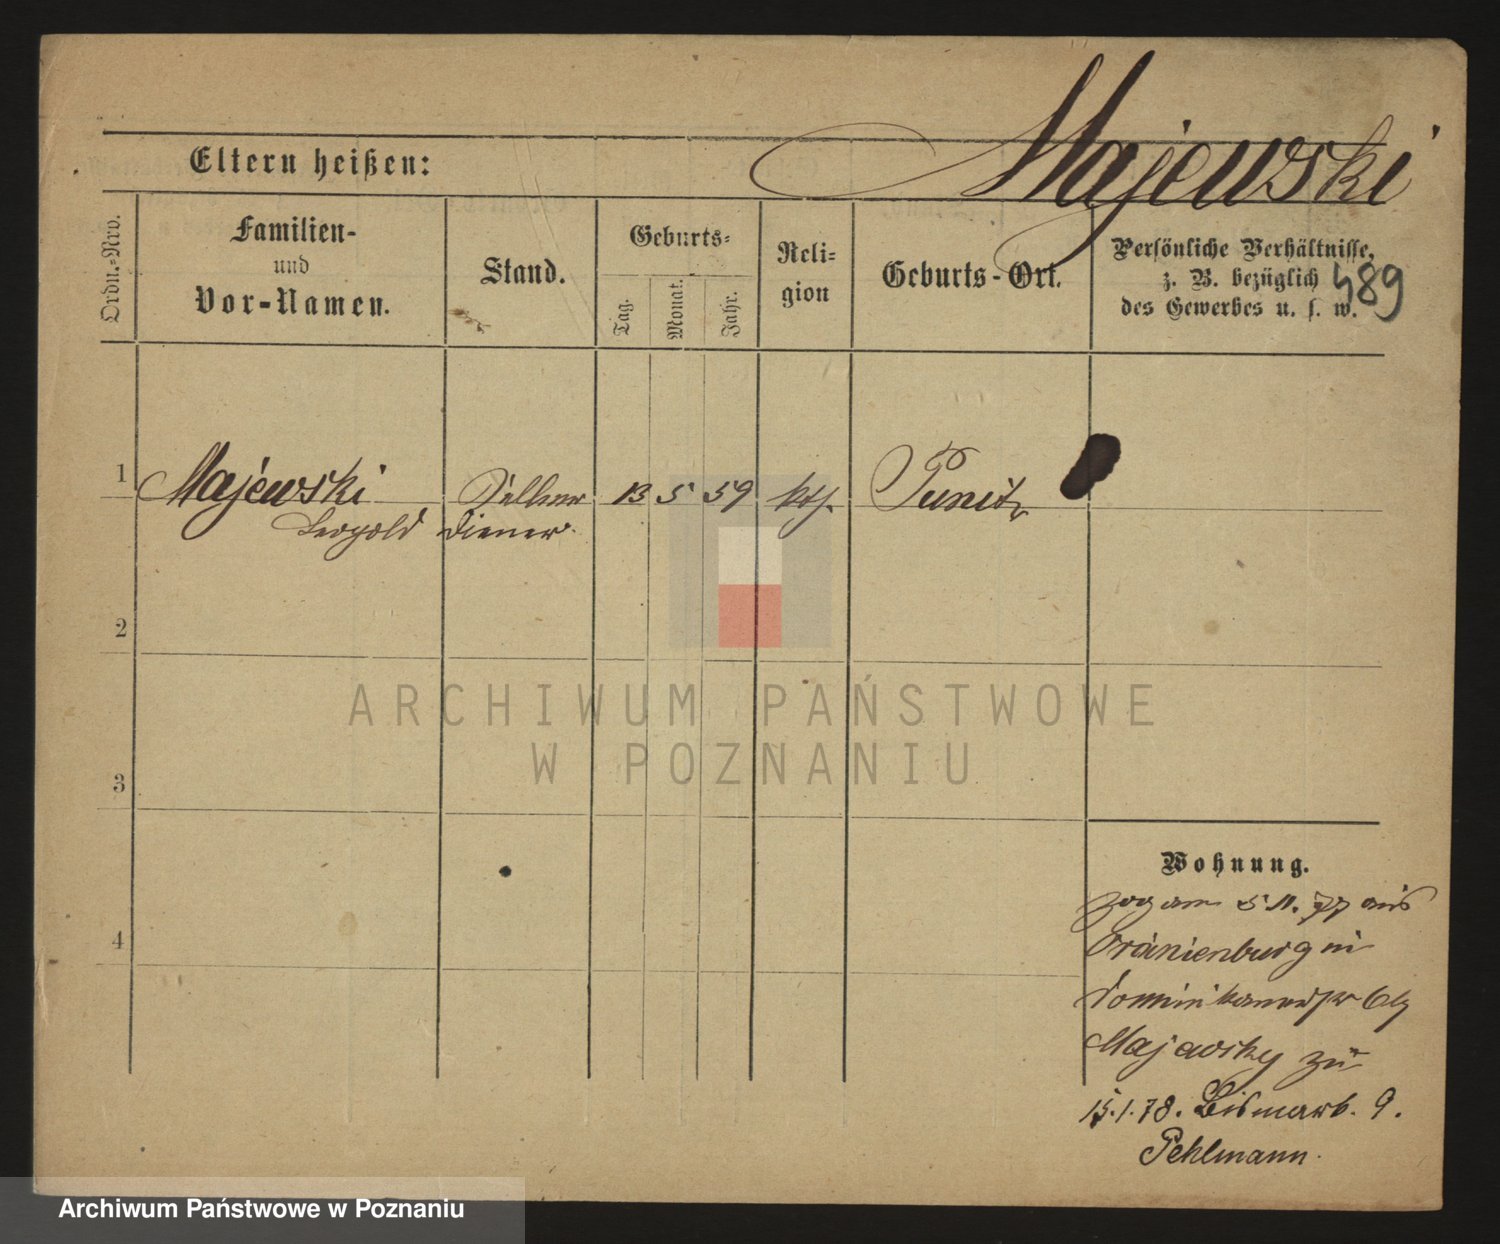 Majewski
Eltern heißen:
Ordn.-Nro.
Familien-
und
Vor-Namen.
Stand.
Geburts-
Tag.
Monat.
Jahr.
Reli-
gion
Geburts-Ort.
Persönliche Verhältnisse,
z. B. bezüglich
des Gewerbes u. s. w.
489
1
Majewski
Leopold
Diener
13 5 59
kth.
Punitz
2
3
4
Wohnung.
zog am 5 11. 77 aus
Oranienburg in
Dominikanerstr
Majewsky zu
15.1.78. Bismarck. 9.
Pehlmann.
ARCHIWUM PAŃSTWOWE
W POZNANIU
Archiwum Państwowe w Poznaniu